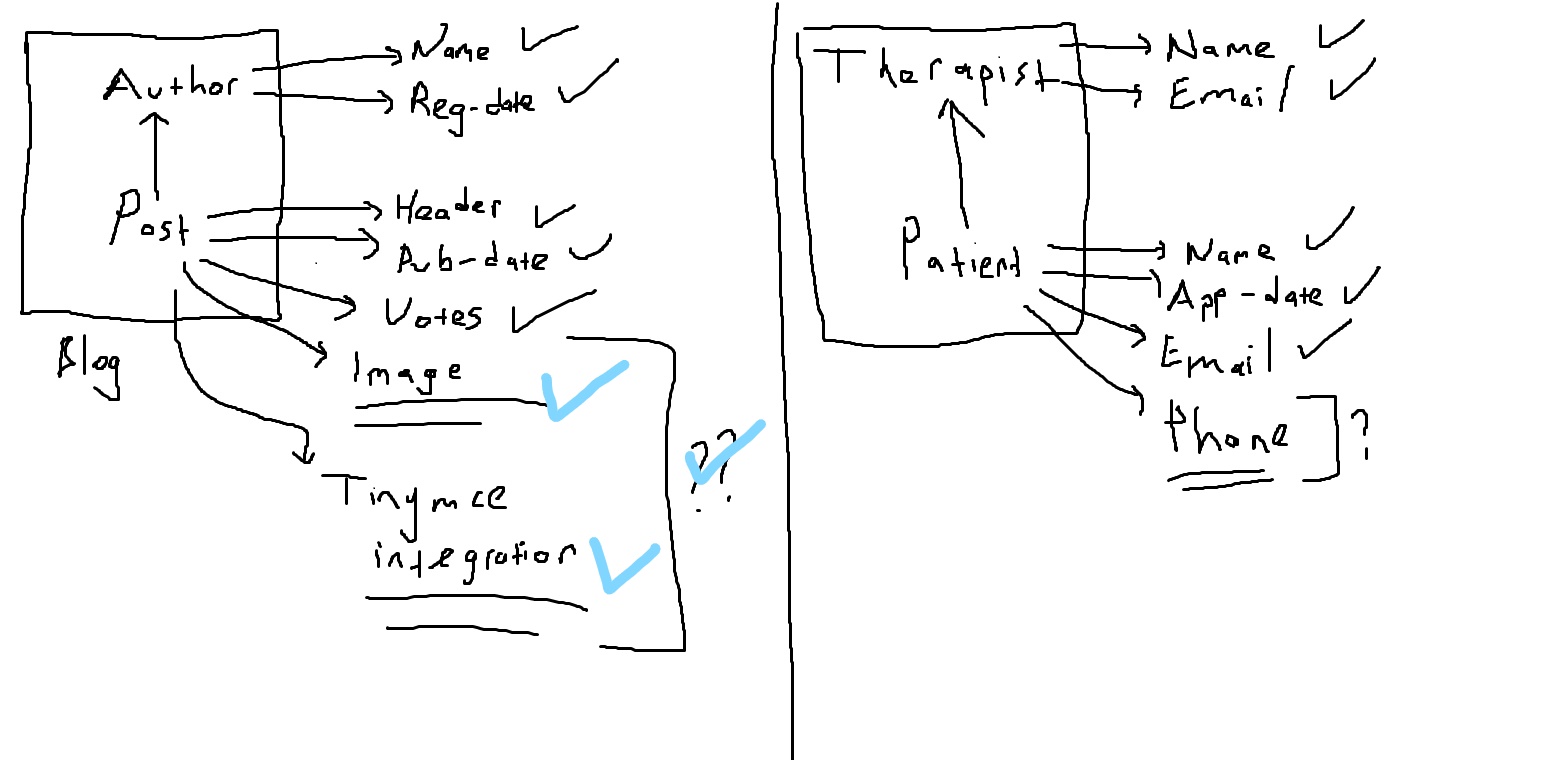 Author
Name
Reg-date
Post
Header
Pub-date
Votes
Image
Tinymce
integration
??
Blog
Therapist
Name
Email
Patient
Name
App-date
Email
Phone
?